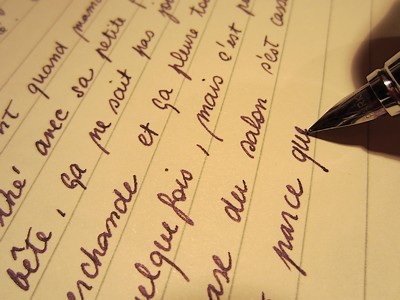 nt quand mama
ché avec sa petite p
bête, ça ne sait pas jou
erchande et ça pleure tou
elquefois, mais c'est p
ase du salon s'est cassé
t parce qu